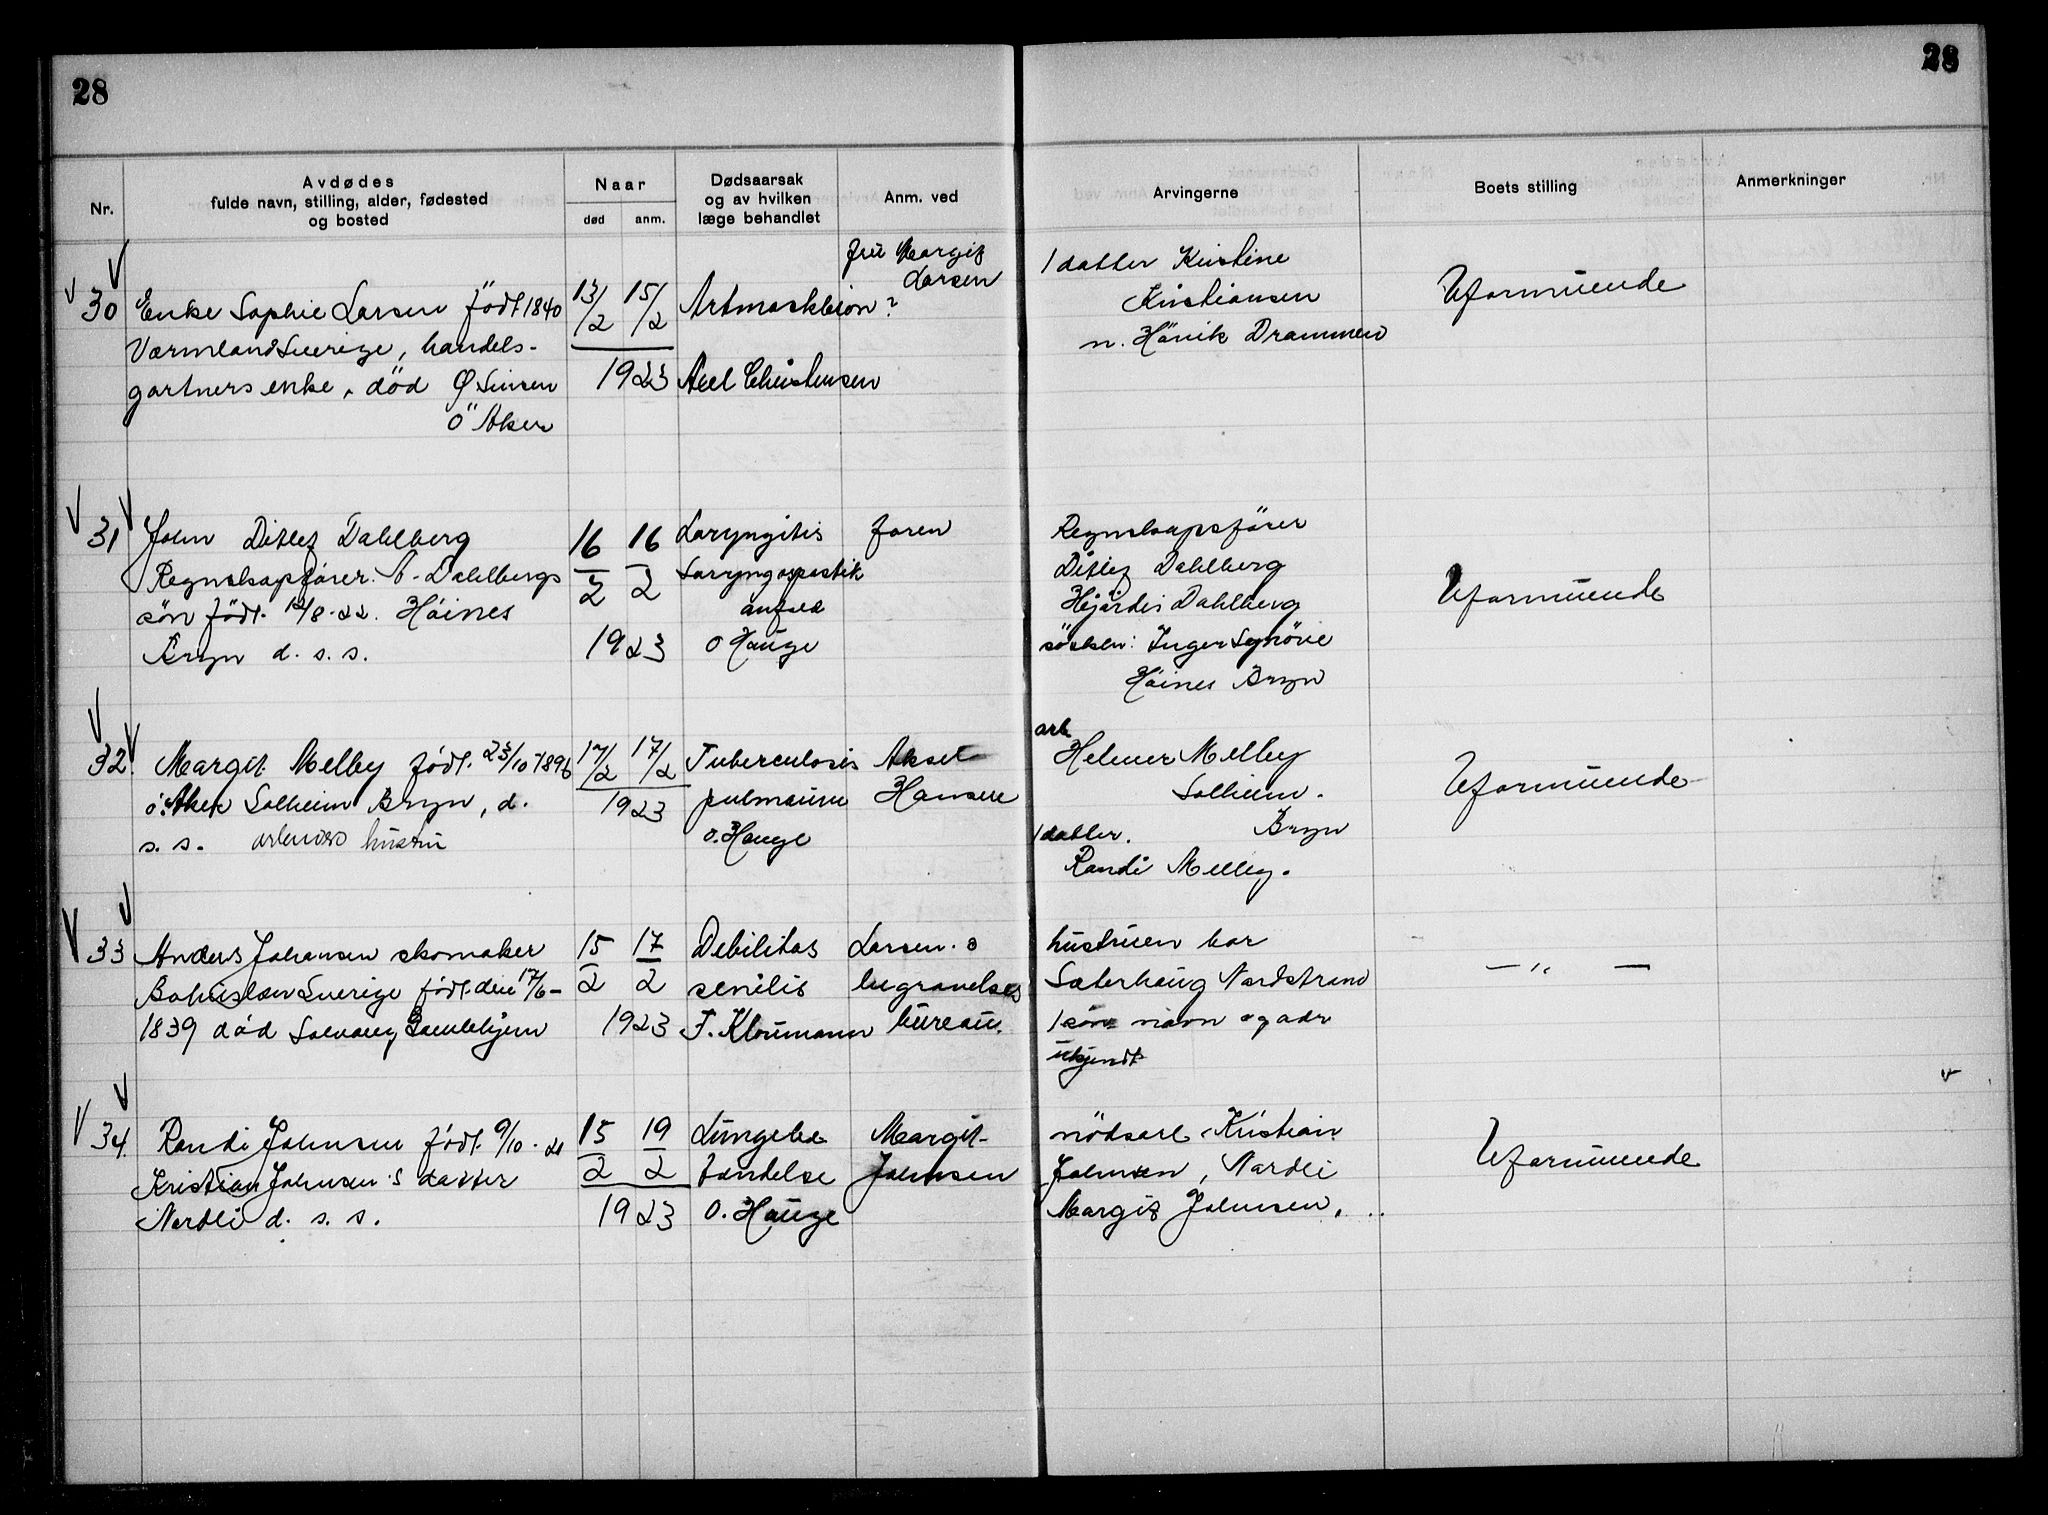 28
28
Nr.
Avdødes
fulde navn, stilling, alder, fødested
og bosted
Naar
død
anm.
Dødsaarsak
og av hvilken
læge behandlet
Anm. ved
Arvingerne
Boets stilling
Anmerkninger
30
Enke Sophie Larsen født 1840
Værmland Sverige, handels-
gartners enke, død Ø Sinsen
Ö Aker
13/2 15/2
1923
Axel Christensen
fru Margit
Larsen
1 datter Kristine
Kristiansen
n. Hönik Drammen
Uformuende
31
John Ditlef Dahlberg
Regnskapsfører. Dahlbergs
sön født. 12/8-22. Höines
Bryn d. s. s.
16/2 16/2
1923
Laryngitis
O Hauge
faren
Regnskapsfører
Ditlef Dahlberg
Dahlberg
søsken: Inger Synöve
Höines Bryn
Uformuende
32.
Margit Melby født. 23/10 1896
ö. Aker Solheim Bryn, d.
s. s. hustru
17/2 17/2
1923
Tuberculosis
pulmonum
O. Hauge
Aksel
Hansen
arb.
Helmer Melby
Solheim.
Bryn
1 datter.
Randi Melby.
Uformuende
33
Anders Johansen skomaker
Bohuslæn Sverige født den 17/6-
1839 død Solvang Gamlehjem
15/2 17/2
1923
Debilitas
senilis
F. Kloumann
Larsens
begravelses
bureau.
hustruen bor
Sæterhaug Nordstrand
1 søn navn og adr
ukjendt
— " —
34.
Randi Johnsen født 9/10-21
Kristian Johnsen's datter
Nordli d. s. s.
15/2 19/2
1923
Lungebe
tændelse
O. Hauge
Margit
Johnsen
nödsarb. Kristian
Johnsen, Nordli
Margit Johnsen, ..
Uformuende